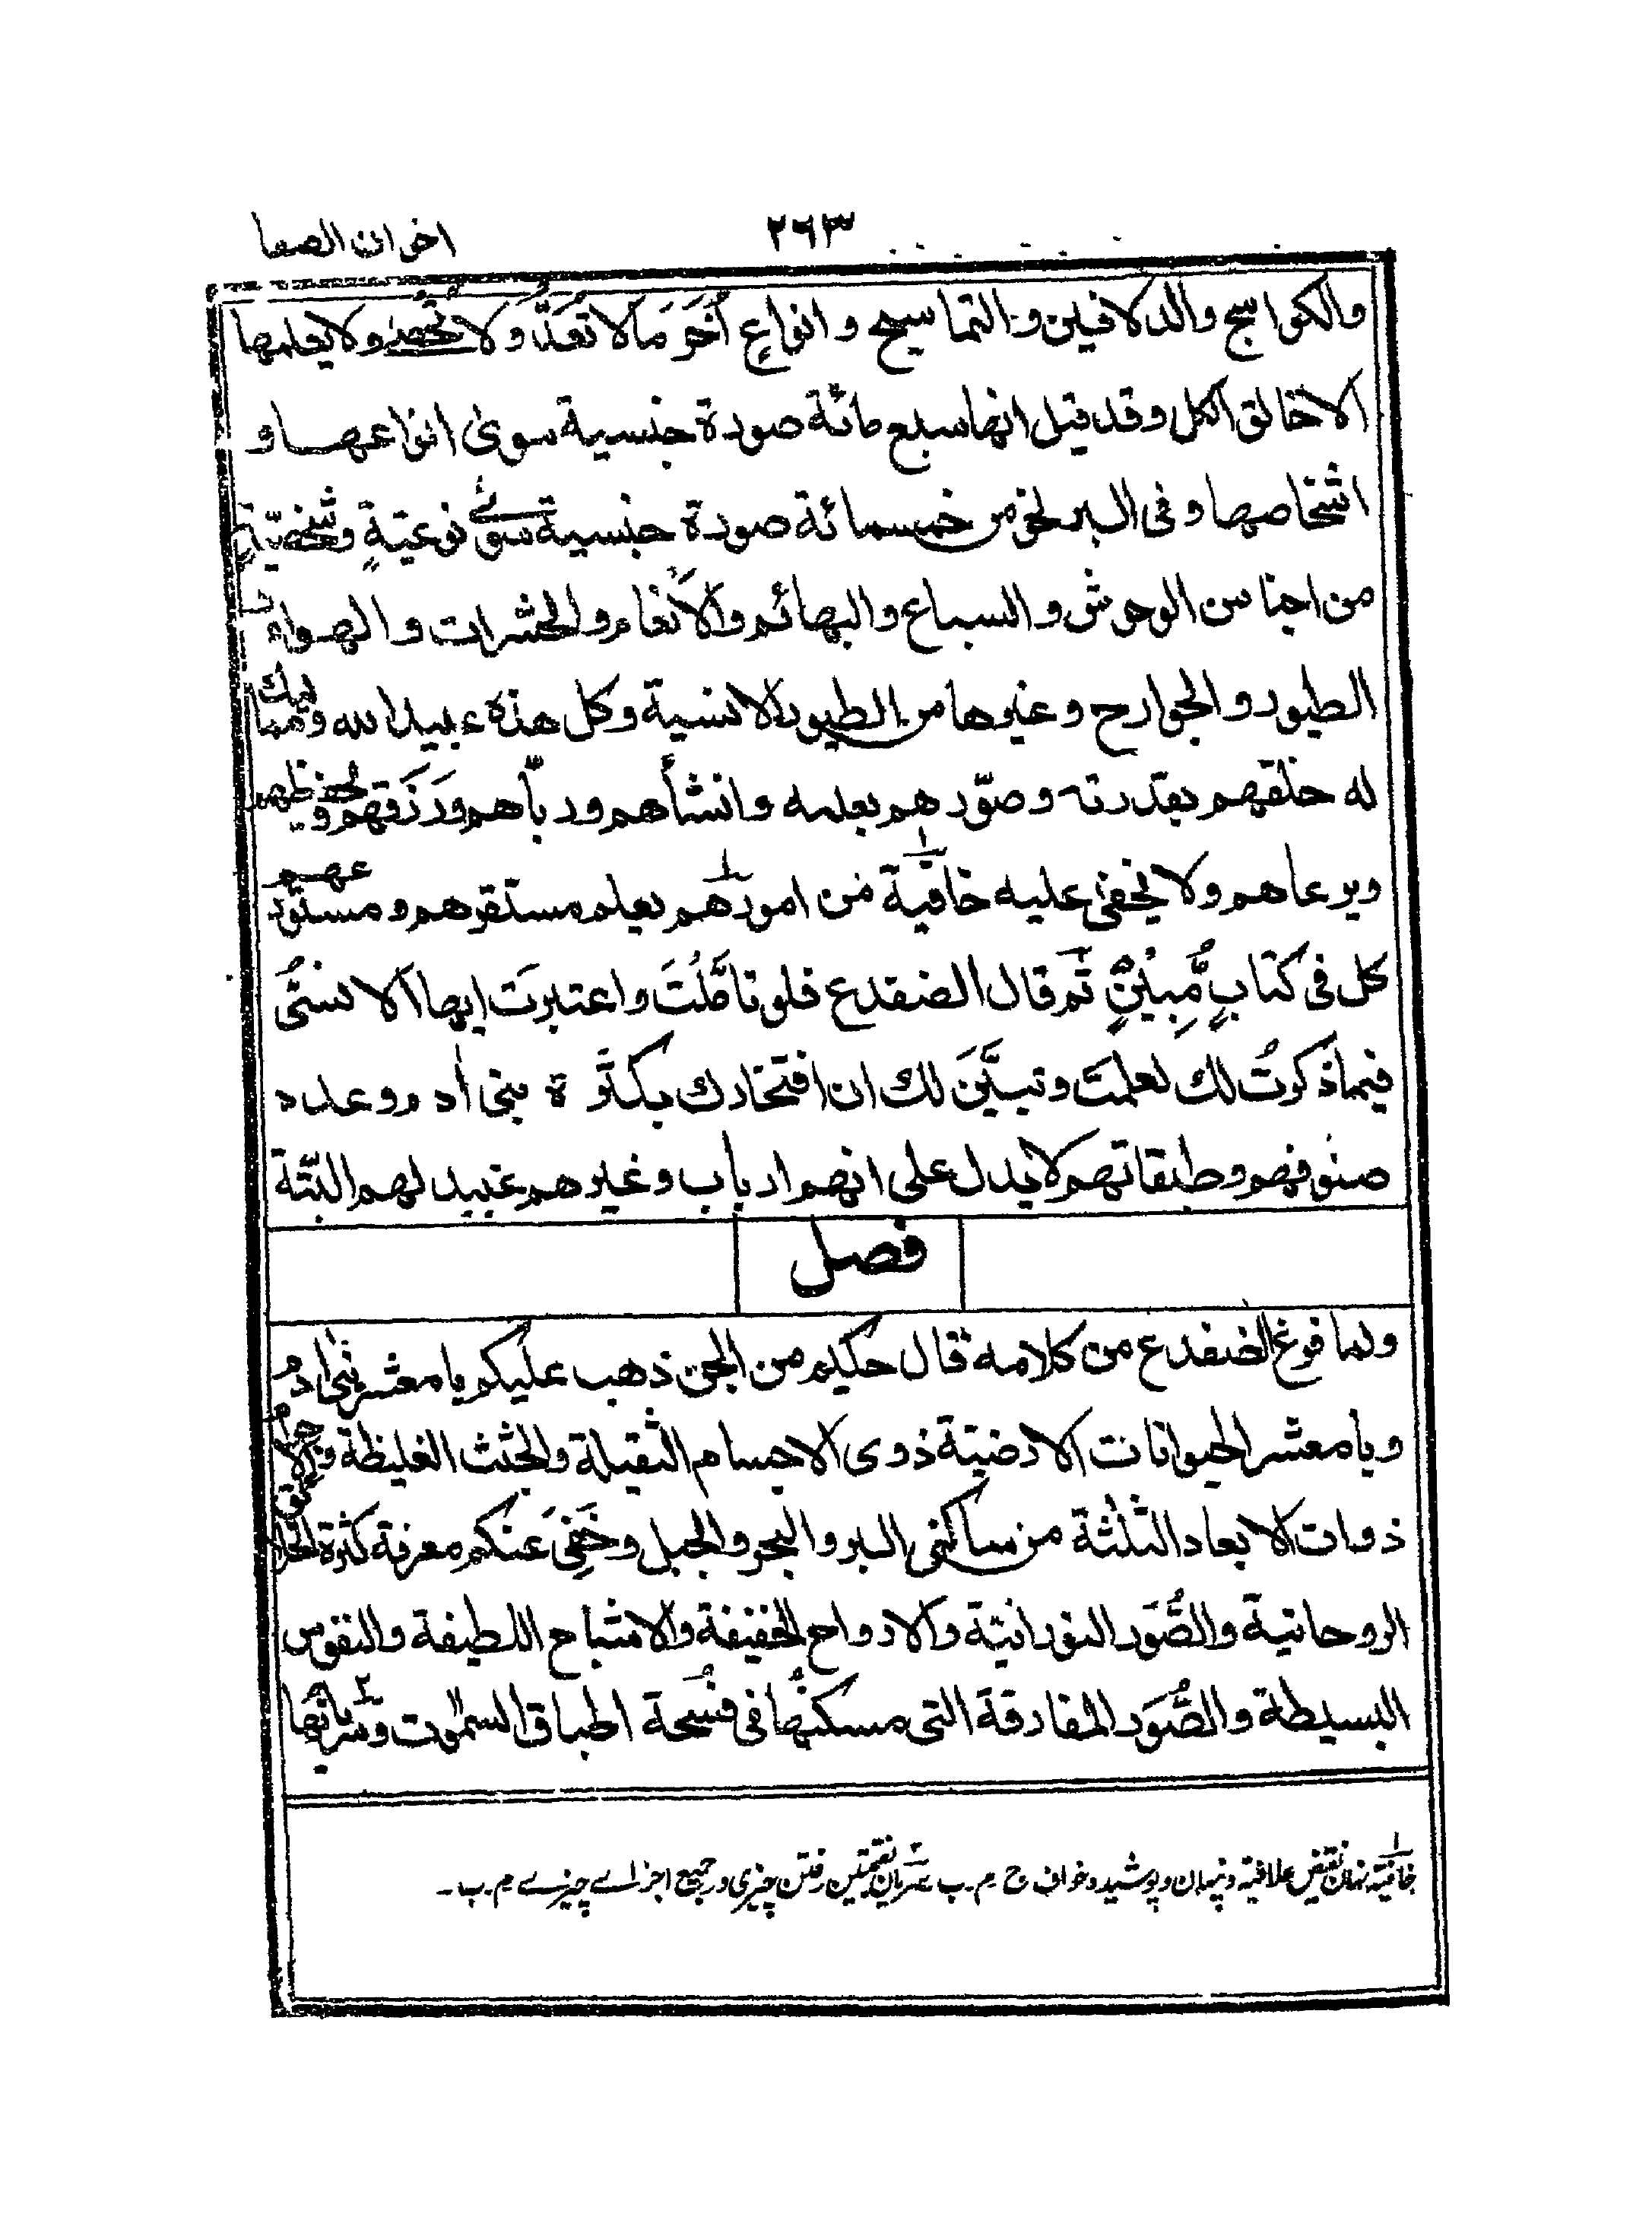 اخوان الصفا
٢٦٣
والكواسج والدلافين والتماسيح وانواعٍ أُخَرَ مَالا تُعَدُّ وَلا تُحصٰى ولا يعلمها
الا خالق الكل وقد قيل انها سبع مائة صورة جنسية سوىٰ انواعها و
اشخاصها وفى البر نحو من خمسمائة صورة جنسية سوىٰ نوعيّةٍ وشخصيّةٍ
من اجناس الوحوش والسباع والبهائم والأَنعام والحشرات والهوام
الطيور والجوارح وغيرها من الطيور الانسية وكل هذه عبيد الله ومماليك
له خلقهم بقدرته وصوّرهم بعلمه وانشأهم وربّاهم ورَزَقهم ويحفظهم
ويرعاهم ولا يخفىٰ عليه خافيةٌ من امورهم يعلم مستقرهم ومستودعهم
كل فى كتابٍ مُّبِيْنٍ ثم قال الضفدع فلو تأمَّلْتَ واعتبرت ايها الانسىُّ
فيما ذكرتُ لك لعلمتَ وتبيَّنَ لك ان افتخارك بكثرة بنى اٰدم وعدد
صنوفهم وطبقاتهم لا يدل على انهم ارباب وغيرهم عبيد لهم البتّة
فصل
ولما فرغ الضفدع من كلامه قال حكيم من الجن ذهب عليكم يا معشر بنى اٰدم
ويا معشر الحيوانات الارضيّة ذوى الاجسام الثقيلة والجثث الغليظة والاجرام
ذوات الابعاد الثلٰثة من ساكنى البر والبحر والجبل وخَفِىَ عنكم معرفة كثرة الخلائق
الروحانية والصُّوَر النورانيّة والارواح الخفيفة والاشباح اللطيفة والنفوس
البسيطة والصُّوَر المفارقة التى مسكنُها فى فُسحة اطباق السمٰوت وسَرَيانُها
خافيّة نهان نقيض علانيّة و پنهان و پوشيده خواف ج م.ب سريان بفتحتين رفتن چيزى در جميع اجزاے چيزے م.ب-